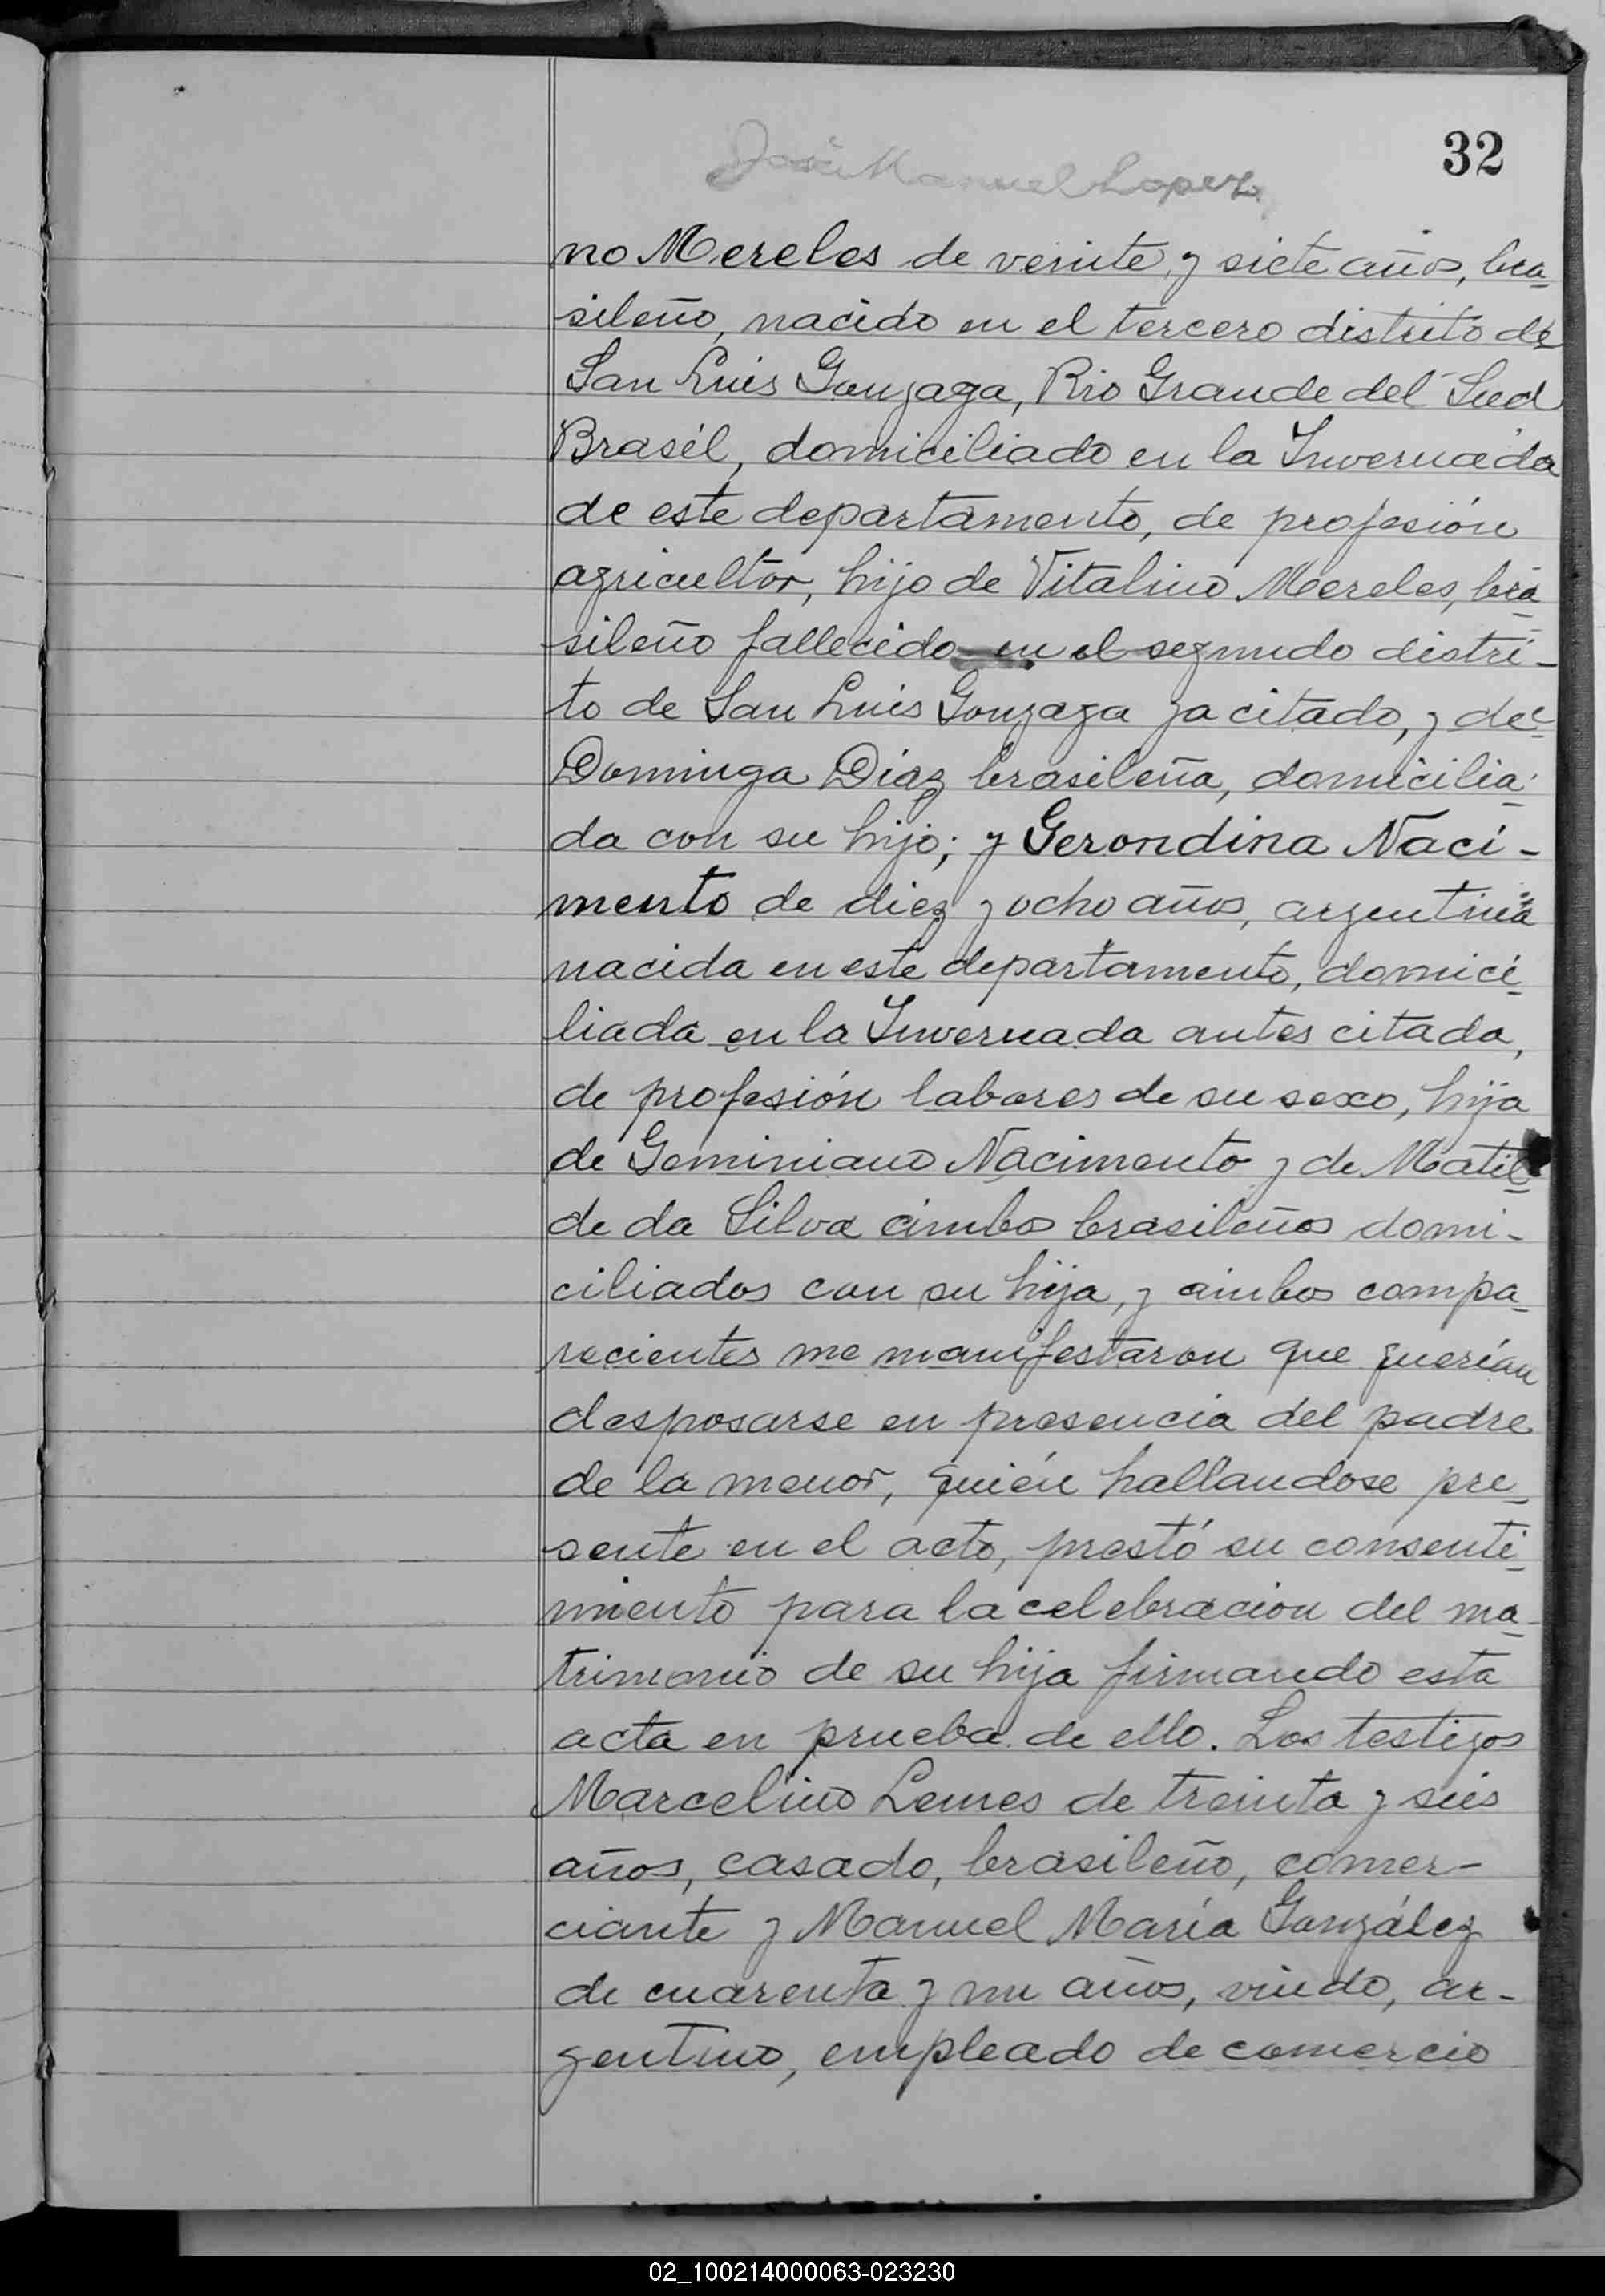 32
José Manuel Lopez
no Mereles de veinte y siete años, bra-
sileño, nacido en el tercero distrito de
San Luis Gonzaga, Rio Grande del Sud
Brasil, domiciliado en la Invernada
de este departamento, de profesión
agricultor, hijo de Vitalino Mereles, bra-
sileño fallecido en el segundo distri-
to de San Luis Gonzaga ya citado, y de
Dominga Diaz brasileña, domicilia-
da con su hijo; y Gerondina Naci-
mento de diez y ocho años, argentina
nacida en este departamento, domici-
liada en la Invernada antes citada,
de profesión labores de su sexo, hija
de Geminiano Nacimento y de Matil-
de da Silva ambos brasileños domi-
ciliados con su hija, y ambos compa-
recientes me manifestaron que querían
desposarse en presencia del padre
de la menor, quién hallandose pre-
sente en el acto, prestó su consenti-
miento para la celebracion del ma-
trimonio de su hija firmando esta
acta en prueba de ello. Los testigos
Marcelino Lemes de treinta y seis
años, casado, brasileño, comer-
ciante y Manuel María González
de cuarenta y un años, viudo, ar-
gentino, empleado de comercio
02_100214000063-023230